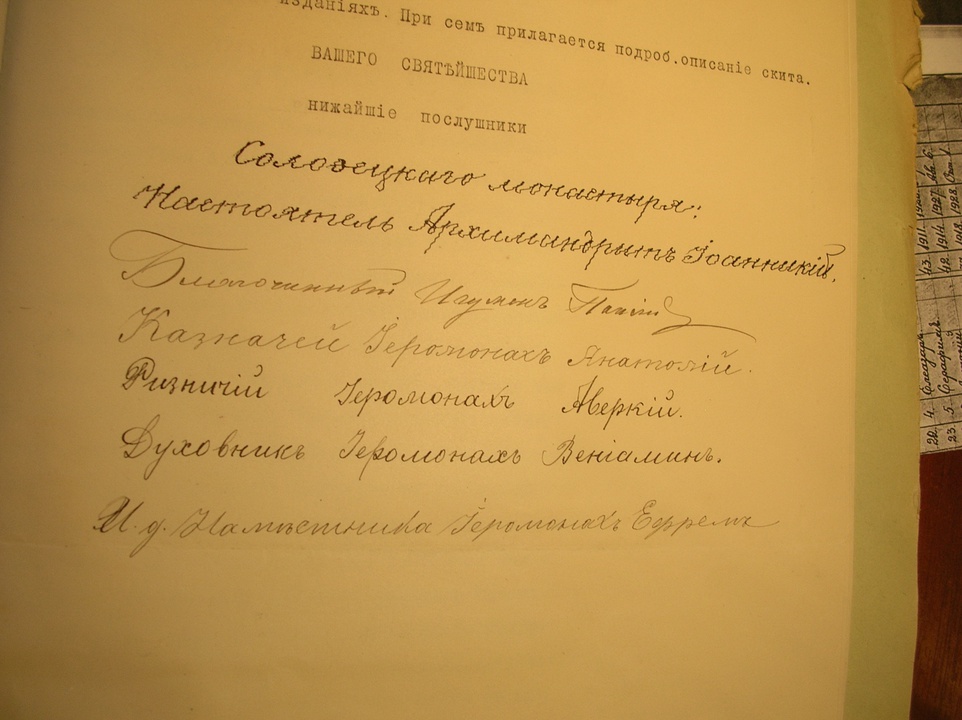 изданіяхъ. При семъ прилагается подроб.описаніе скита.
ВАШЕГО СВЯТѢЙШЕСТВА
нижайшіе послушники
Соловецкаго монастыря:
Настоятель Архимандритъ Іоанникій.
Благочинный Игуменъ
Казначей Іеромонахъ Анатолій.
Ризничій Іеромонахъ Аверкій.
Духовникъ Іеромонахъ Веніаминъ.
И. д. Намѣстника Іеромонахъ Ефремъ